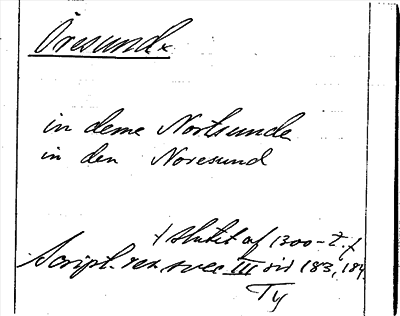 Öresund
in deme Nortsunde
in den Noresund
slutet af 1300-t.
Script. rer. svec. III sid 183, 184
Ty